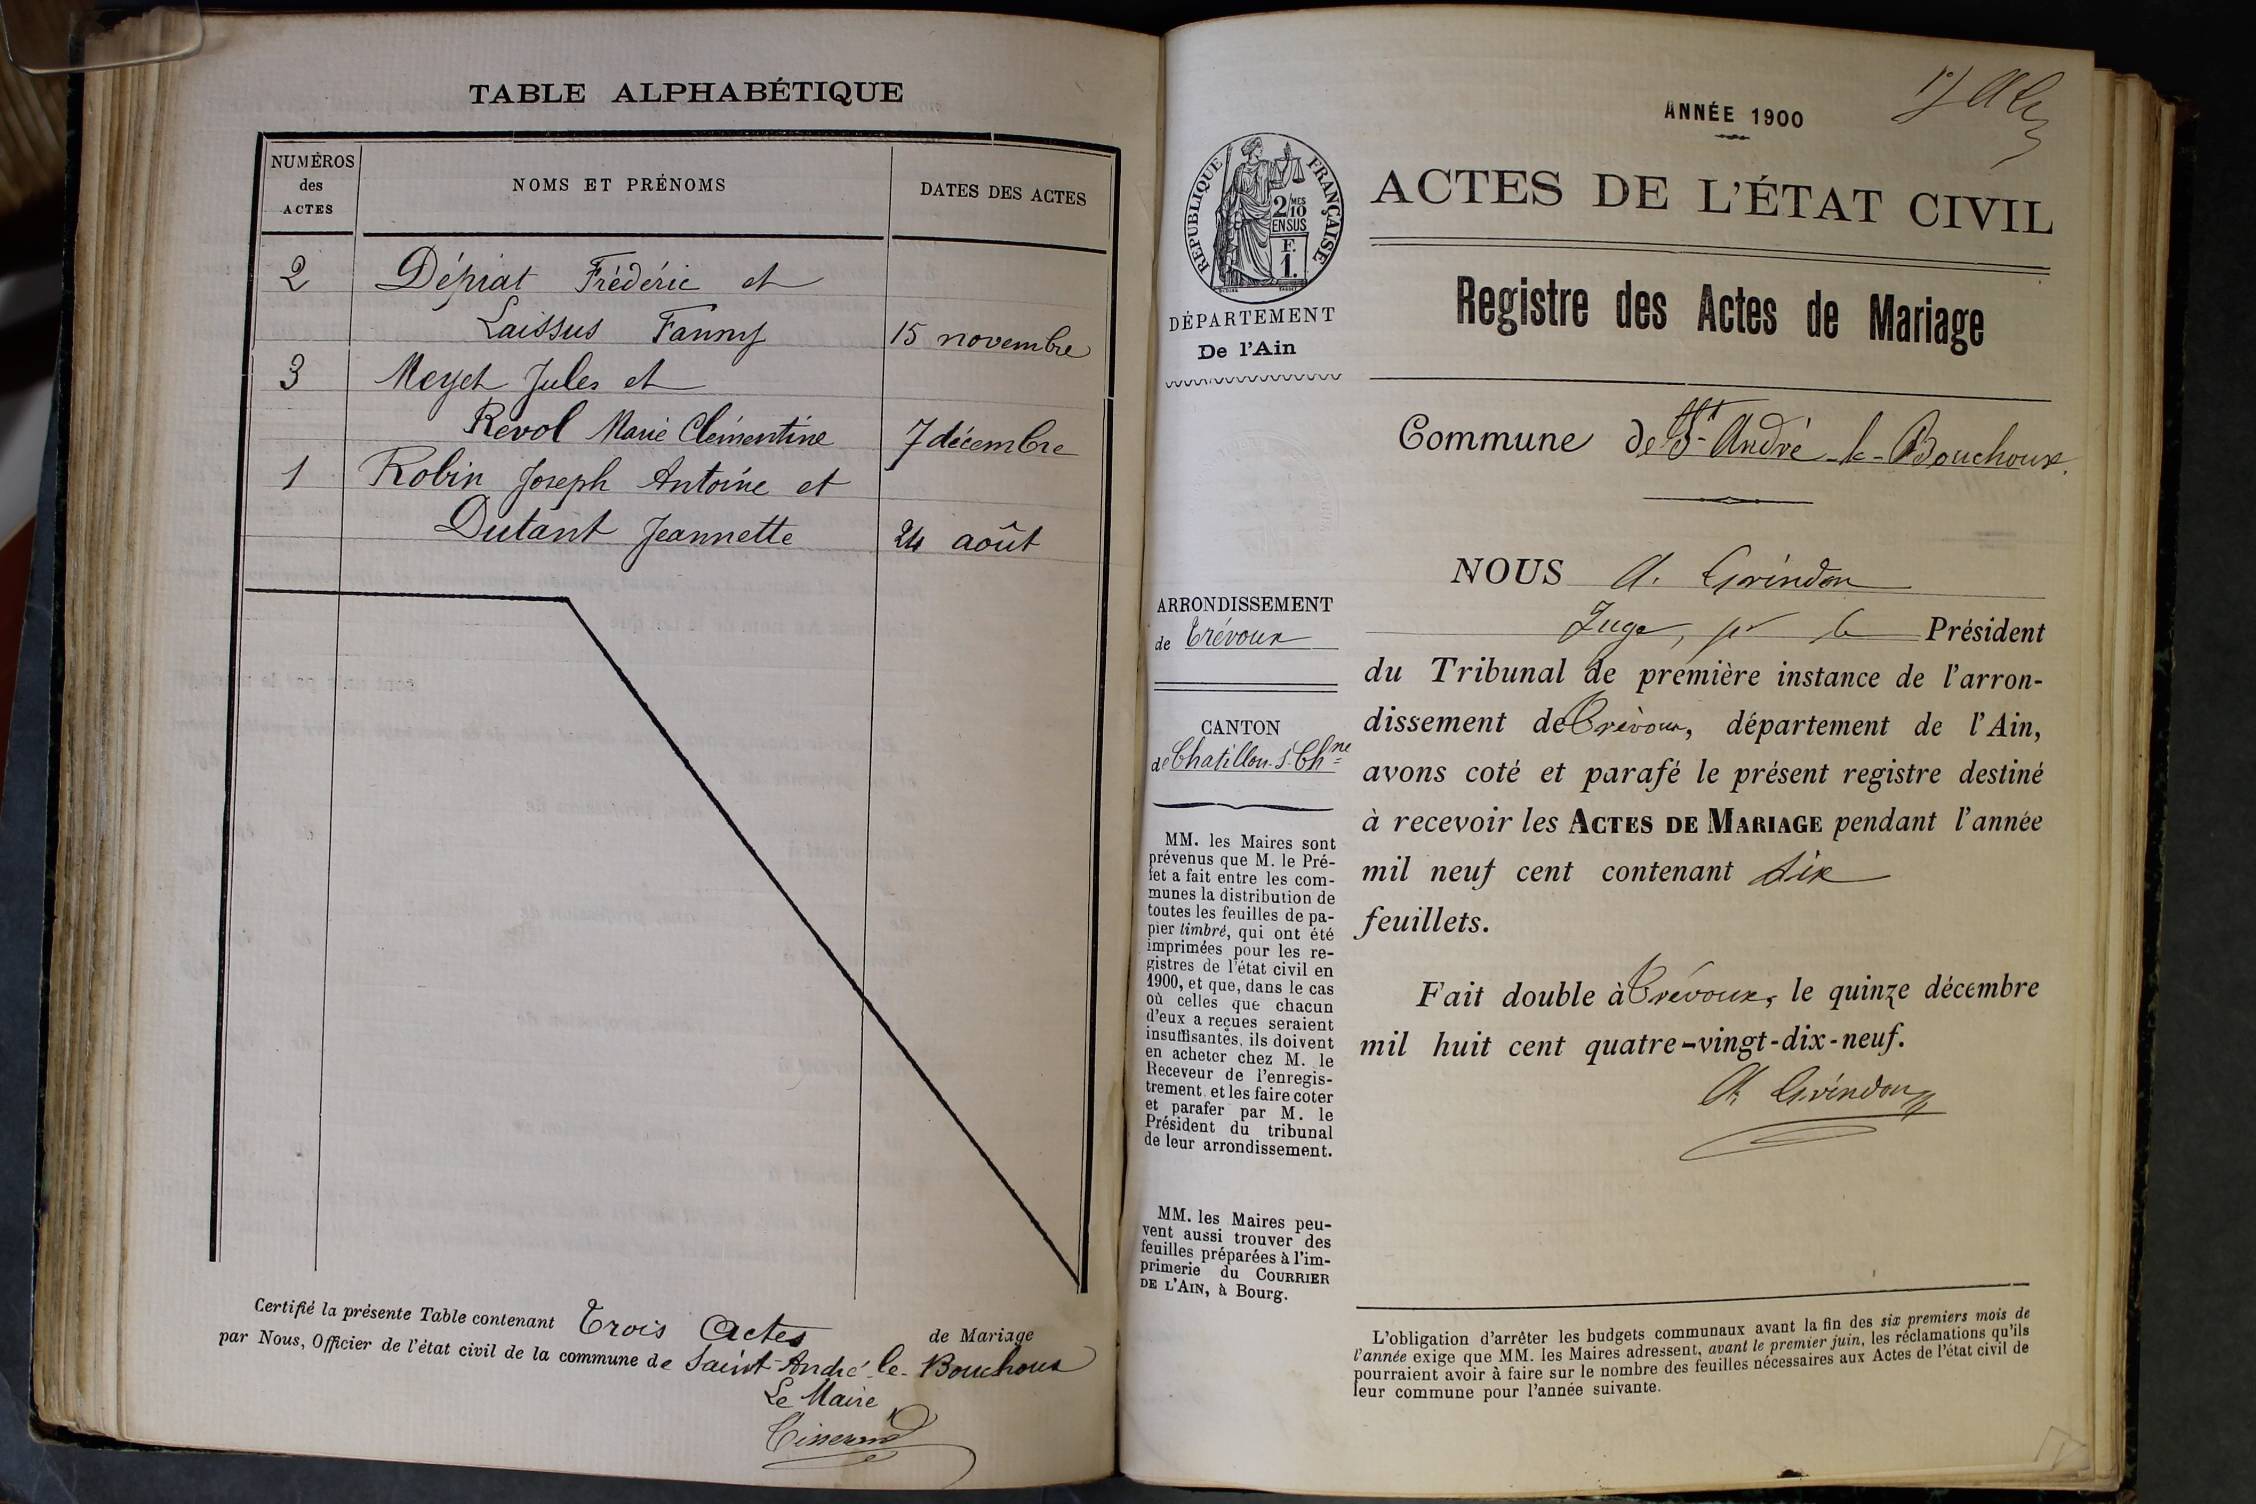 TABLE ALPHABÉTIQUE
NUMÉROS
des
ACTES
NOMS ET PRÉNOMS
DATES DES ACTES
2 Dépiat Frédéric et
Laissus Fanny 15 novembre
3 Meyet Jules et
Revol Marie Clémentine 7 décembre
1 Robin Joseph Antoine et
Dutant Jeannette 24 août
Certifié la présente Table contenant Trois Actes de Mariage
par Nous, Officier de l'état civil de la commune de Saint-André-le-Bouchoux
Le Maire
Tisserand
ANNÉE 1900
RÉPUBLIQUE FRANÇAISE
2/10 MES
EN SUS
F.
1.
DÉPARTEMENT
De l'Ain
ARRONDISSEMENT
de Trévoux
CANTON
de Chatillon-s-Chne
MM. les Maires sont
prévenus que M. le Pré-
fet a fait entre les com-
munes la distribution de
toutes les feuilles de pa-
pier timbré, qui ont été
imprimées pour les re-
gistres de l'état civil en
1900, et que, dans le cas
où celles que chacun
d'eux a reçues seraient
insuffisantes, ils doivent
en acheter chez M. le
Receveur de l'enregis-
trement, et les faire coter
et parafer par M. le
Président du tribunal
de leur arrondissement.
MM. les Maires peu-
vent aussi trouver des
feuilles préparées à l'im-
primerie du COURRIER
DE L'AIN, à Bourg.
ACTES DE L'ÉTAT CIVIL
Registre des Actes de Mariage
Commune de St-André-le-Bouchoux.
NOUS A. Grindon
Juge, pr le Président
du Tribunal de première instance de l'arron-
dissement de Trévoux, département de l'Ain,
avons coté et parafé le présent registre destiné
à recevoir les ACTES DE MARIAGE pendant l'année
mil neuf cent contenant dix
feuillets.
Fait double à Trévoux, le quinze décembre
mil huit cent quatre-vingt-dix-neuf.
A. Grindon
L'obligation d'arrêter les budgets communaux avant la fin des six premiers mois de
l'année exige que MM. les Maires adressent, avant le premier juin, les réclamations qu'ils
pourraient avoir à faire sur le nombre des feuilles nécessaires aux Actes de l'état civil de
leur commune pour l'année suivante.